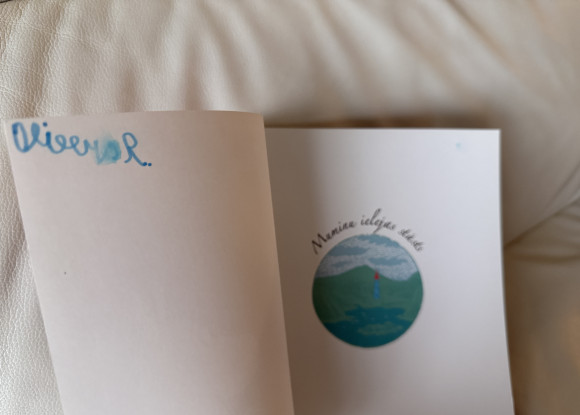 Oliver R.
Mumiņu ielejas stāsti